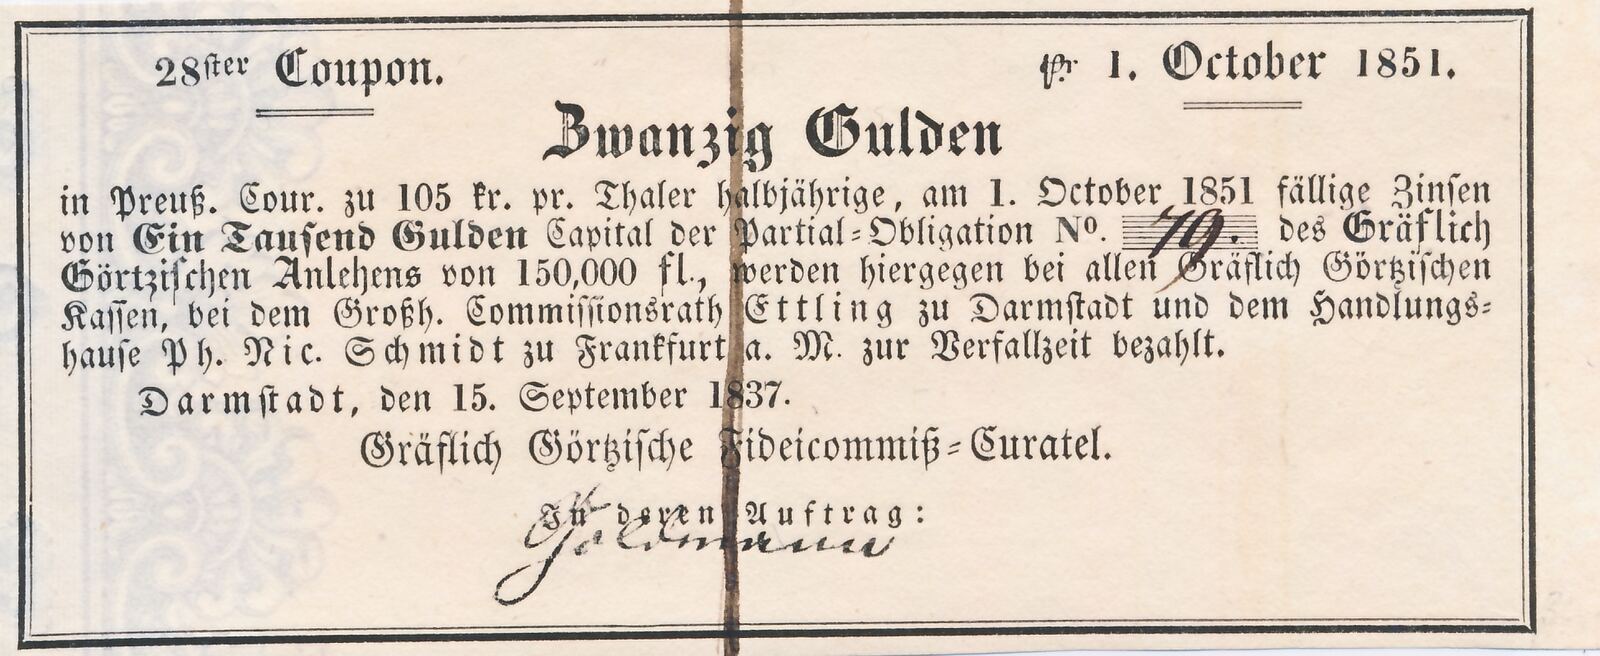 28ster Coupon. pr 1. October 1851.
Zwanzig Gulden
in Preuß. Cour. zu 105 kr. pr. Thaler halbjährige, am 1. October 1851 fällige Zinsen
von Ein Tausend Gulden Capital der Partial-Obligation No. 79. des Gräflich
Görtzischen Anlehens von 150,000 fl., werden hiergegen bei allen Gräflich Görtzischen
Kassen, bei dem Großh. Commissionsrath Ettling zu Darmstadt und dem Handlungs-
hause Ph. Nic. Schmidt zu Frankfurt a. M. zur Verfallzeit bezahlt.
Darmstadt, den 15. September 1837.
Gräflich Görtzische Fideicommiß-Curatel.
In deren Auftrag:
Goldmann